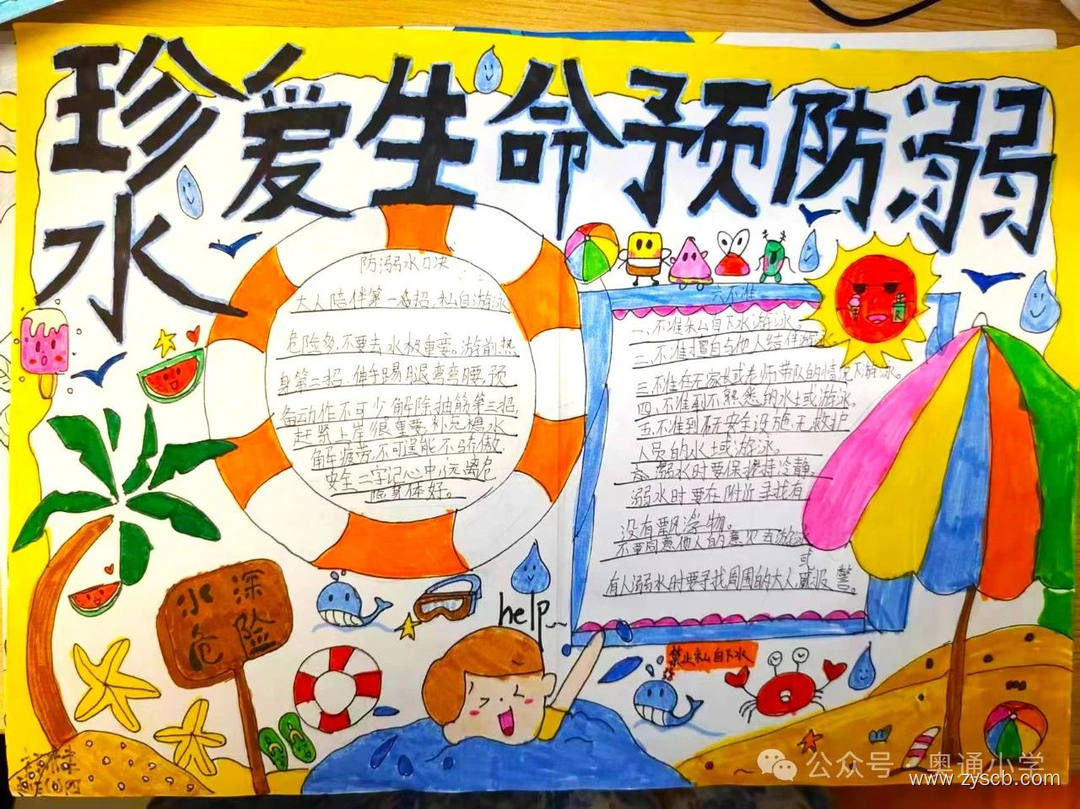 珍爱生命预防溺
水
防溺水口决
大人陪伴第一招,私自游泳
危险多,不要去水极重要。游前热
身第二招,伸手踢腿弯弯腰,预
备动作不可少解除抽筋第三招,
赶紧上岸很重要补充糖水
角车疲劳,不可逞能不骄傲
安全二字记心中,远离危
险身体好。
六不准
一、不准私自下水游泳。
二、不准擅自与他人结伴游泳
三、不准在无家长或老师带队的情况下游泳。
四、不准到不熟悉的水土或游泳。
五、不准到无安全设施,无救护
人员的水土或游泳。
溺水时要保持冷静。
溺水时要在附近寻找有
没有飘浮物。
不要同意他人的意见去游泳
或
有人溺水时要寻找周围的大人或报警。
水深
危险
help
禁止私自下水
公众号 奥通小学
www.zyscb.com